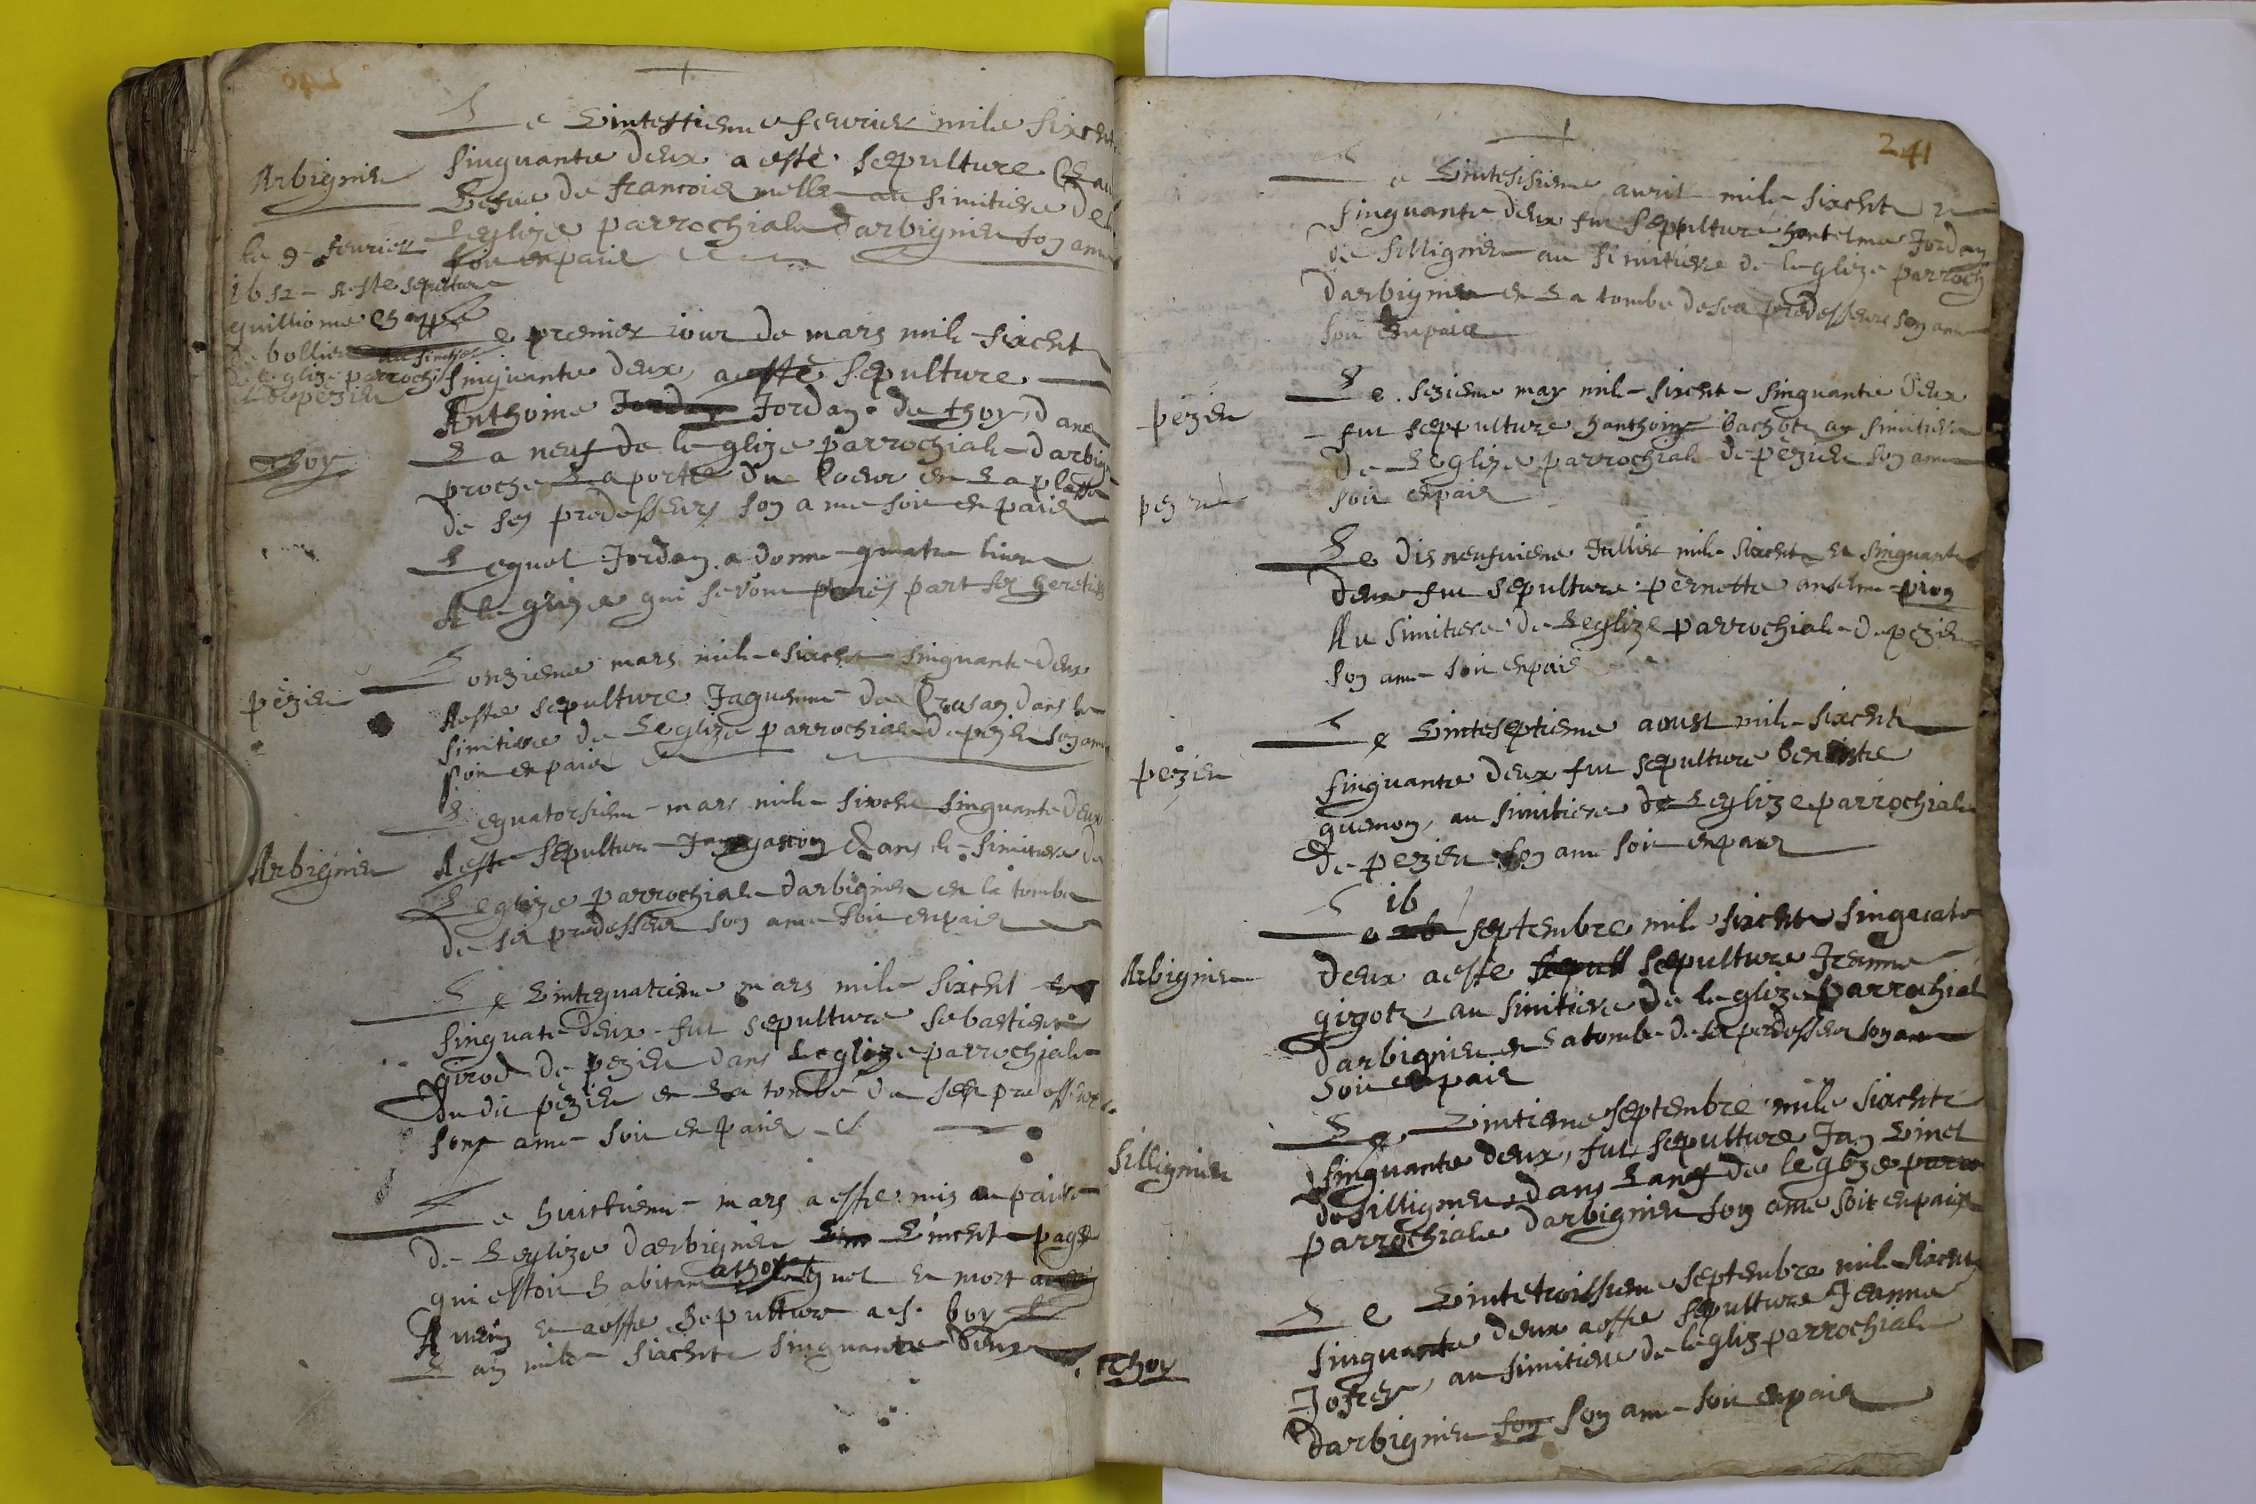 240
Le vintettieme fevrier mile sixcent
Arbignieu
singuante deux a esté sepulture
vefue de francois au simitiere de
leglize parrochiale darbignieu son ame
soit en paix
le 9 fevrier
1652 a este sepulture
guilliome
de bollieu au simitiere
de leglize parrochi
de pezieu
Le premier iour de mars mil sixcent
singuante deux, a esté sepulture
Anthoine Jordan Jordan de thoy, dans
Thoy
la neuf de leglize parrochiale darbig
proche la porte du coeur en la plasse
de ses predesseurs son ame soit en paix
Lequel Jordan a donne quatre livre
A leglize qui seront paies part ses heretie
Lonzieme mars mile sixcent singuante deux
pézieu
A este sepulture Jaquemme de Crusan dans le
simitiere de Leglize parrochiale de pezieu son ame
soit en paix
Le quatorsieme mars mile sixcent singuante deux
Arbignieu
A este sepulture dans le simitiere de
Leglize parrochiale darbignieu en la tombe
de ses predesseur son ame soit en paix
Le vintequatrieme mars mile sixcent
singuate deux fut sepulture sebastiene
girod de pezieu dans Leglize parrochiale
du dit pézieu en la tombe de ses predesseurs
sont ame soit en paix
Le huictieme mars a este mis au
de Leglize darbignieu Vincent page
qui estoit habitant a thoy lequel est mort
et a este sepulture
Lan mile sixcent singuante deux
241
Le vintesisieme avril mile sixcent
singuante deux fut sepulture hantelme Jordan
de sillignieu au simitiere de leglize parroch
darbignieu en la tombe de ses predesseurs son ame
soit en paix
pézieu
Le sezieme may mil sixcent singuante deux
fut sepulture hanthoine bachot au simitiere
de Leglize parrochiale de pézieu son ame
soit en paix
pezieu
Le disneufvieme Jullier mile sixcent et singuante
deux fut sepulture pernette anselme pion
Au simitiere de Leglize parrochiale de pezieu
son ame soit en paix
Le vinteseptieme aoust mile sixcent
pezieu
singuante deux fut sepulture benoiste
guemon, au simitiere de Leglize parrochiale
de pezieu son ame soit en paix
Le 16 septembre mile sixcent singuate
Arbignieu
deux a este sepull sepulture Jeanne
gigotz, au simitiere de leglize parrochial
darbignieu en la tombe de ses predesseur son ame
soit en paix
Le vintieme septembre mile sixcent
Sillignieu
singuante deux, fut sepulture Jan vinet
de sillignieu, dans Lanf de leglize parro
parrochiale darbignieu son ame soit en paix
Le vintetroissieme septembre mile sixcent
Thoy
singuante deux a este sepulture Jeanne
Jofrey, au simitiere de leglize parrochiale
darbignieu son son ame soit en paix